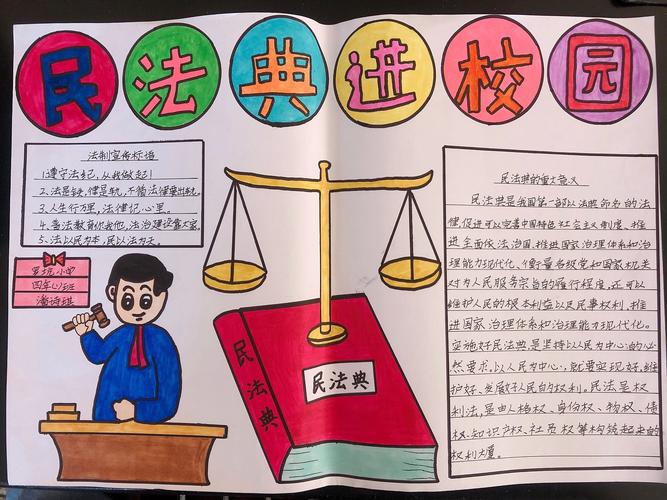 民法典进校园
法制宣传标语
1、遵守法纪，从我做起！
2、法是铁，律是轨，不循法律要出轨。
3、人生行万里，法律记心里。
4、普法教育你我他，法治建设靠大家。
5、法以民为本，民以法为天。
四年(1)班
民法典
民法典
民法典的重大意义
民法典是我国第一部以法典命名的法
律，促进可以完善中国特色社会主义制度、推
进全面依法治国、推进国家治理体系和治
理能力现代化、衡量各级党和国家机关
对为人民服务宗旨的履行程度，还可以
维护人民的根本利益以及民事权利，推
进国家治理体系和治理能力现代化。
实施好民法典是坚持以人民为中心的必
然要求，以人民为中心，就要实现好、维
护好、发展好人民的权利。民法是权
利法，是由人格权、身份权、物权、债
权、知识产权、社员权等构筑起来的
权利大厦。